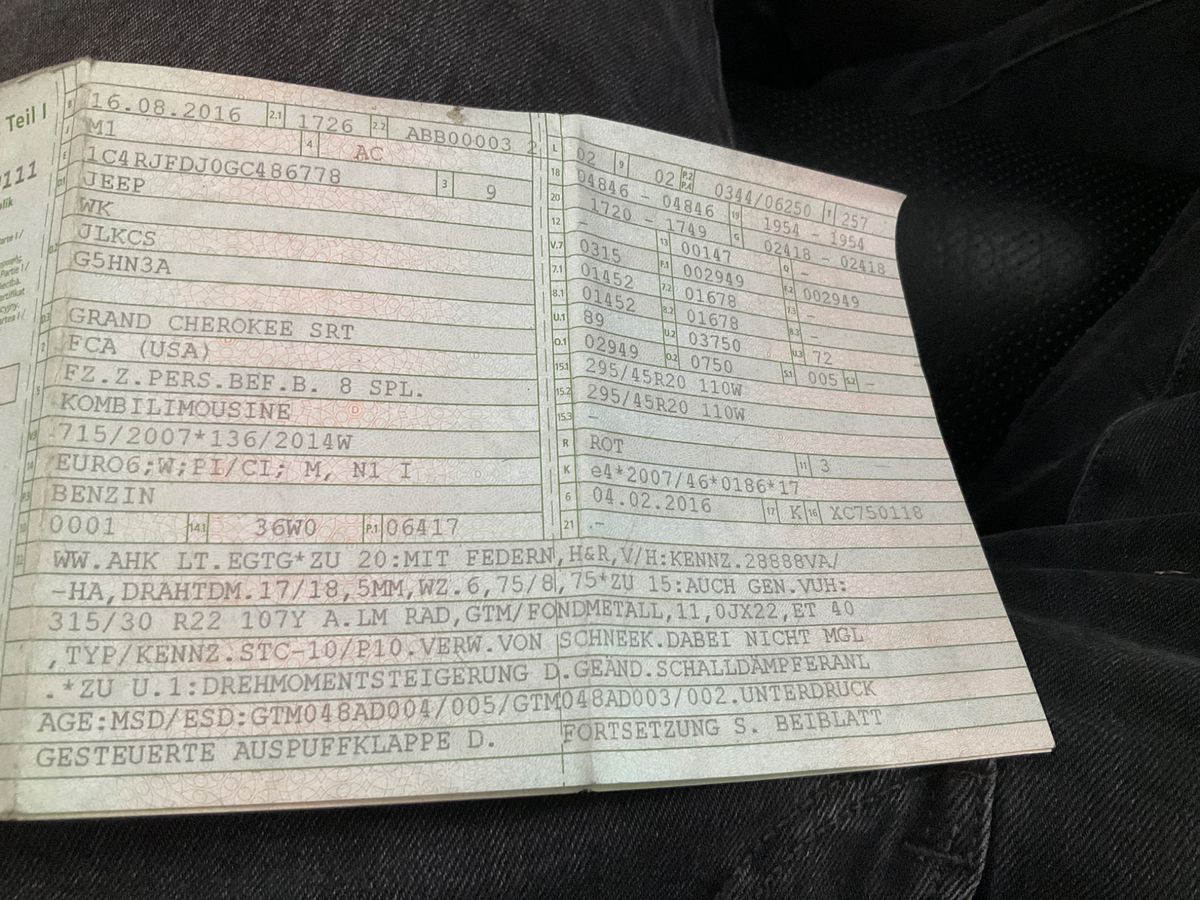 Teil I
B 16.08.2016 2.1 1726 2.2 ABB00003 2
J M1 4 AC
E 1C4RJFDJ0GC486778 3 9
D.1 JEEP
WK
D.2 JLKCS
G5HN3A
D.3 GRAND CHEROKEE SRT
2 FCA (USA)
5 FZ.Z.PERS.BEF.B. 8 SPL.
KOMBILIMOUSINE
V.9 715/2007*136/2014W
14 EURO6;W;PI/CI; M, N1 I
P.3 BENZIN
10 0001 14.1 36W0 P.1 06417
L 02 9 02 P.2 P.4 0344/06250 T 257
18 04846 - 04846 19 1954 - 1954
20 1720 - 1749 G 02418 - 02418
12 - 13 00147 Q -
V.7 0315 F.1 002949 F.2 002949
7.1 01452 7.2 01678 7.3 -
8.1 01452 8.2 01678 8.3 -
U.1 89 U.2 03750 U.3 72
O.1 02949 O.2 0750 S.1 005 S.2 -
15.1 295/45R20 110W
15.2 295/45R20 110W
15.3 -
R ROT 11 3
K e4*2007/46*0186*17
6 04.02.2016 17 K 16 XC750118
21 .-
22 WW.AHK LT.EGTG*ZU 20:MIT FEDERN,H&R,V/H:KENNZ.28888VA/
-HA,DRAHTDM.17/18,5MM,WZ.6,75/8,75*ZU 15:AUCH GEN.VUH:
315/30 R22 107Y A.LM RAD,GTM/FONDMETALL,11,0JX22,ET 40
,TYP/KENNZ.STC-10/P10.VERW.VON SCHNEEK.DABEI NICHT MGL
.*ZU U.1:DREHMOMENTSTEIGERUNG D.GEÄND.SCHALLDÄMPFERANL
AGE:MSD/ESD:GTM048AD004/005/GTM048AD003/002.UNTERDRUCK
GESTEUERTE AUSPUFFKLAPPE D. FORTSETZUNG S. BEIBLATT